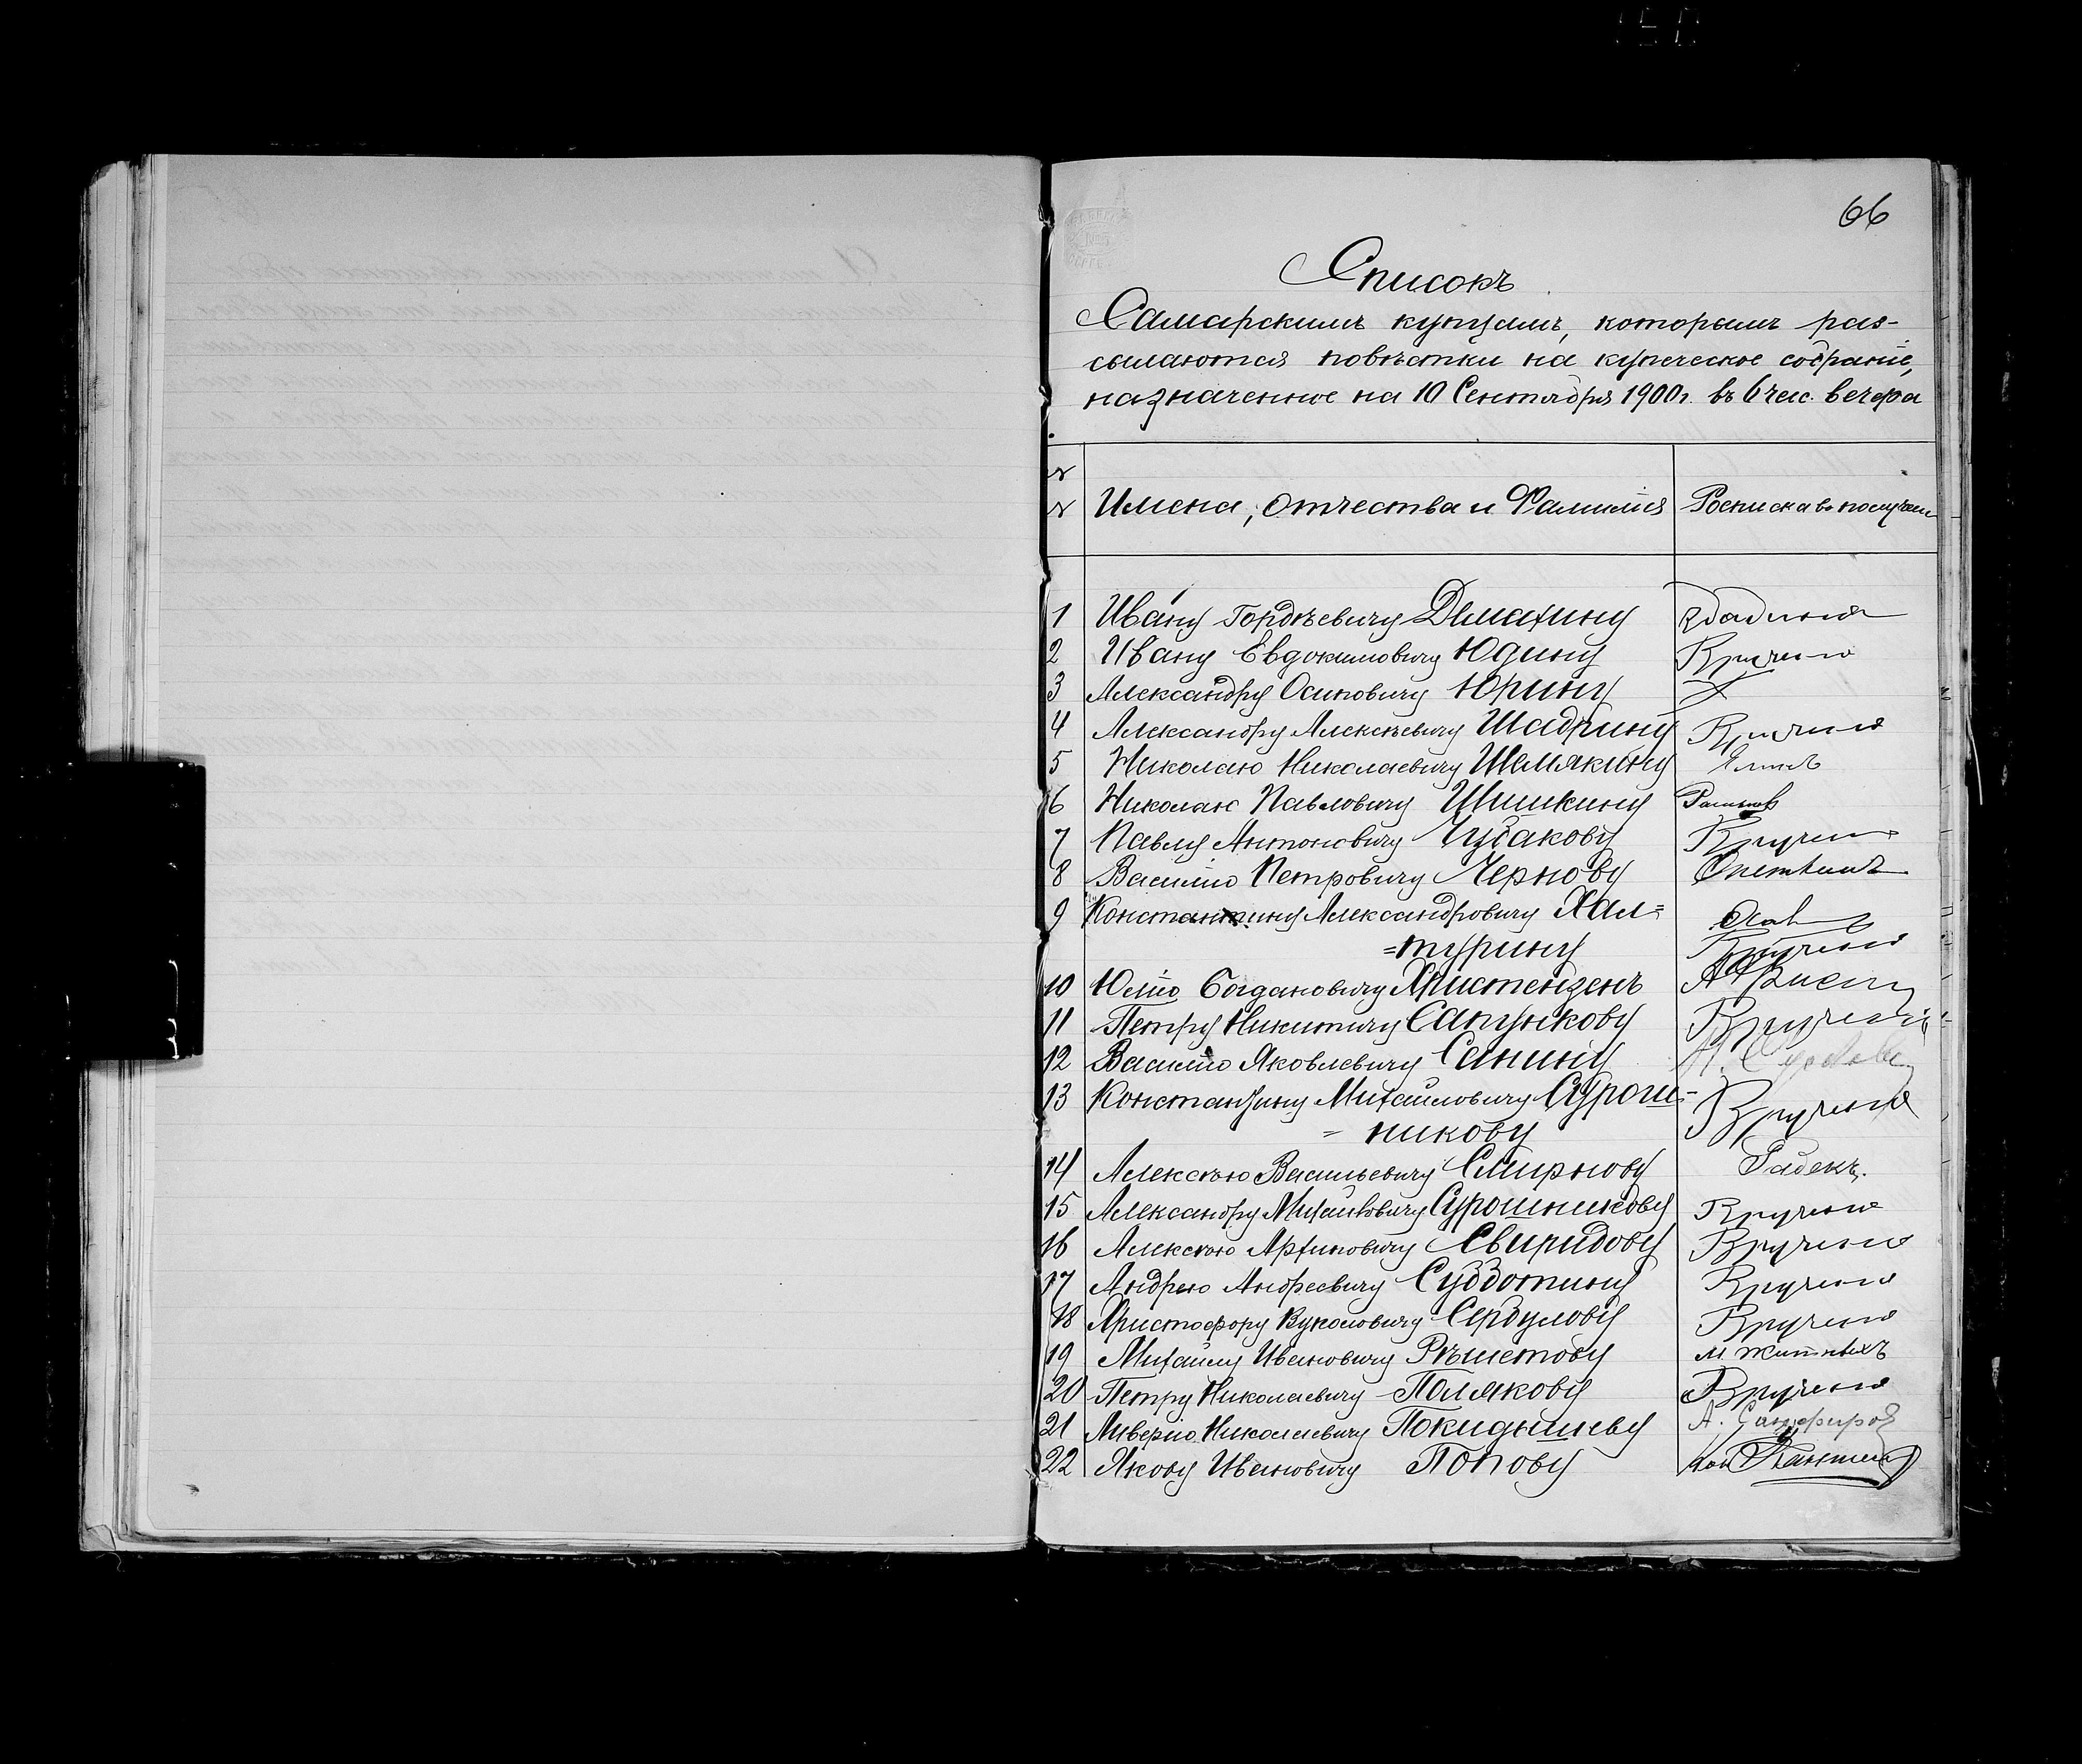 66
Списокъ
Самарскимъ купцамъ, которымъ раз-
сылаются повѣстки на купеческое собраніе,
назначенное на 10 Сентября 1900г. въ 6 час. вечера
№ № Имена, Отчества и Фамилія Росписка въ получен
1 Ивану Гордѣевичу
2 Ивану Евдокимовичу Юдину Вручено
3 Александру Осиповичу Юрину
4 Александру Алексѣевичу Шадрину Вручено
5 Николаю Николаевичу Шемякину
6 Николаю Павловичу Шишкину
7 Павлу Антоновичу Чудакову Вручено
8 Василію Петровичу Чернову
9 Константину Александровичу Хал=
=турину Вручено
10 Юлію Богдановичу Христензенъ
11 Петру Никитичу Сапункову Вручено
12 Василію Яковлевичу Санину
13 Константину Михайловичу Сурош-
= никову Вручено
14 Алексѣю Васильевичу Смирнову
15 Александру Михайловичу Сурошникову Вручено
16 Алексѣю Архиповичу Свиридову Вручено
17 Андрею Андреевичу Субботину Вручено
18 Христофору Вуколовичу Сербулову Вручено
19 Михаилу Ивановичу Рѣшетову М Житкихъ
20 Петру Николаевичу Полякову Вручено
21 Ливерію Николаевичу Покидышеву А. Санфиров
22 Якову Ивановичу Попову